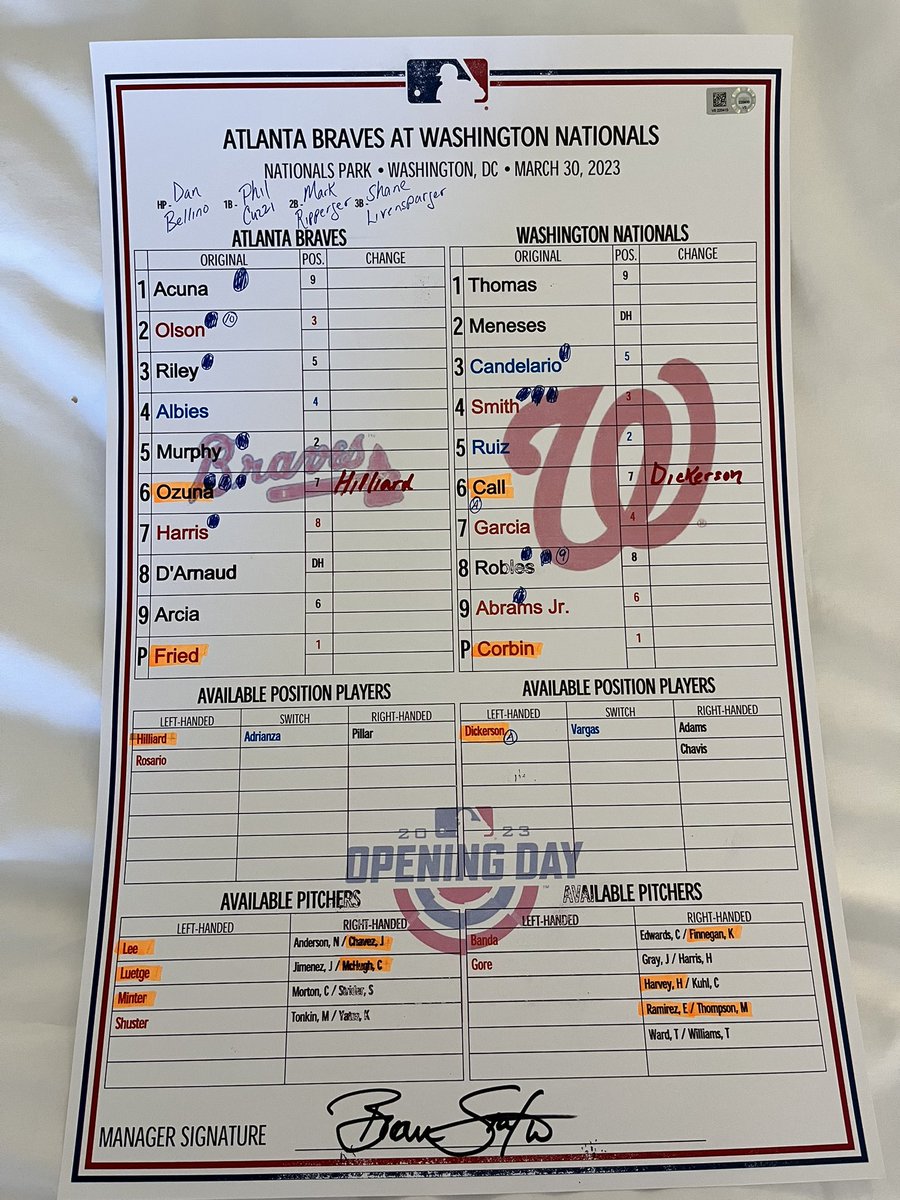 ATLANTA BRAVES AT WASHINGTON NATIONALS
NATIONALS PARK • WASHINGTON, DC • MARCH 30, 2023
HP- Dan Bellino 1B- Phil Cuzzi 2B- Mark Ripperger 3B- Shane Livensparger
ATLANTA BRAVES
ORIGINAL POS. CHANGE
1 Acuna 9
2 Olson 10 3
3 Riley 5
4 Albies 4
5 Murphy 2
6 Ozuna 7 Hilliard
7 Harris 8
8 D'Arnaud DH
9 Arcia 6
P Fried 1
WASHINGTON NATIONALS
ORIGINAL POS. CHANGE
1 Thomas 9
2 Meneses DH
3 Candelario 5
4 Smith 3
5 Ruiz 2
6 Call 7 Dickerson
A
7 Garcia 4
8 Robles 9 8
9 Abrams Jr. 6
P Corbin 1
Braves
W
AVAILABLE POSITION PLAYERS
LEFT-HANDED SWITCH RIGHT-HANDED
Hilliard Adrianza Pillar
Rosario
AVAILABLE POSITION PLAYERS
LEFT-HANDED SWITCH RIGHT-HANDED
Dickerson A Vargas Adams
Chavis
2023
OPENING DAY
AVAILABLE PITCHERS
LEFT-HANDED RIGHT-HANDED
Lee Anderson, N / Chavez, J
Luetge Jimenez, J / McHugh, C
Minter Morton, C / Strider, S
Shuster Tonkin, M / Yates, K
AVAILABLE PITCHERS
LEFT-HANDED RIGHT-HANDED
Banda Edwards, C / Finnegan, K
Gore Gray, J / Harris, H
Harvey, H / Kuhl, C
Ramirez, E / Thompson, M
Ward, T / Williams, T
MANAGER SIGNATURE